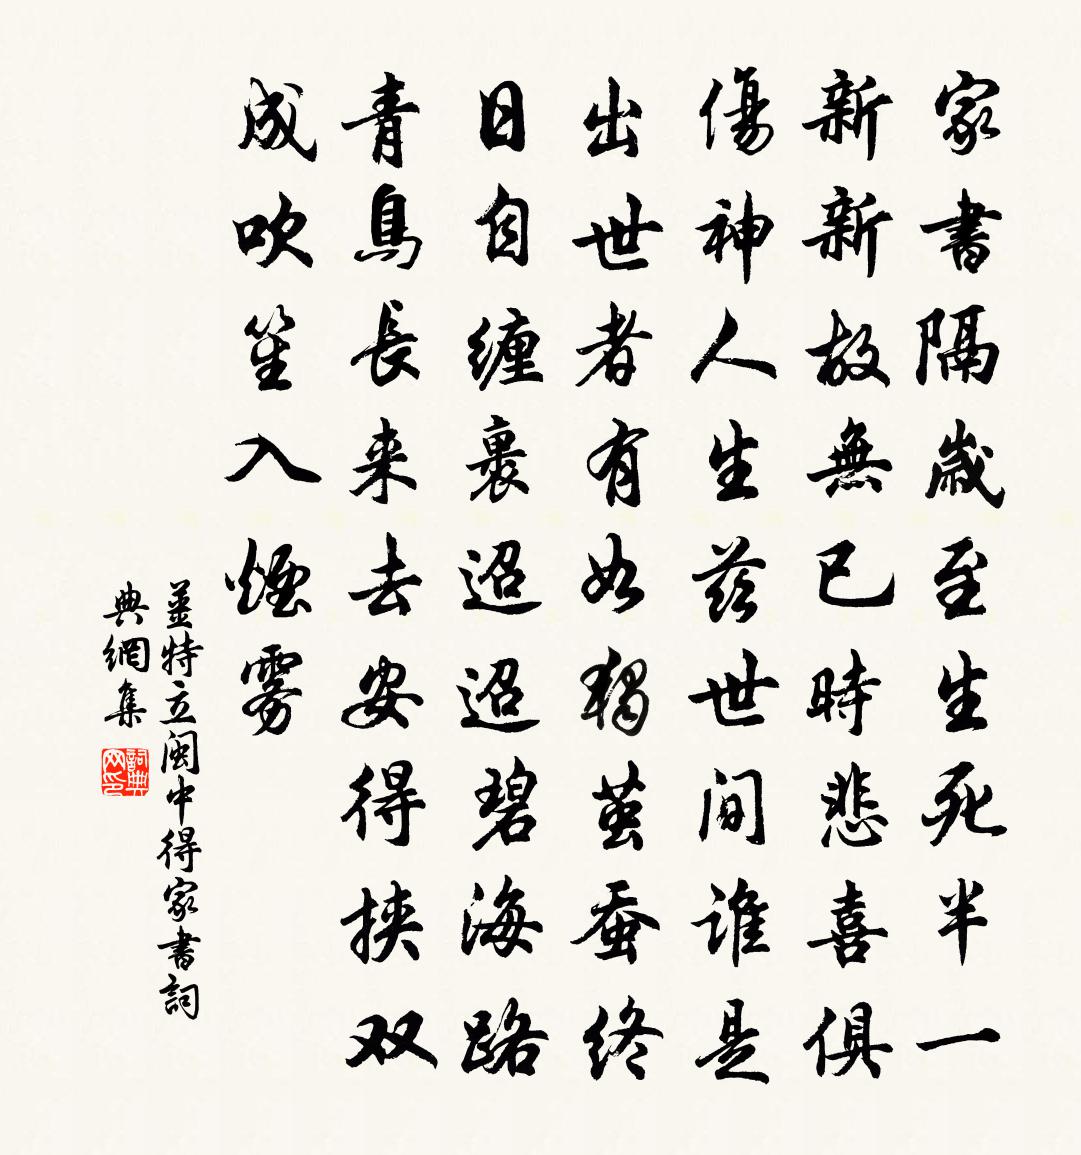 家書隔歲至生死半一
新新故無已時悲喜俱
傷神人生茲世間誰是
出世者有如獨繭蚕終
日自纏裹迢迢碧海路
青鳥長来去安得挾双
成吹笙入煙雾
薑特立闽中得家書詞
典網集
詞典网印